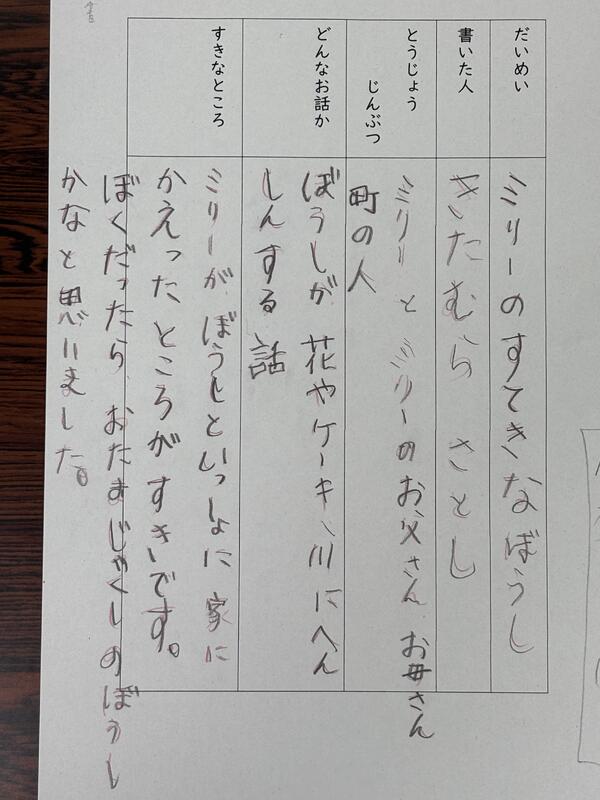 だいめい
ミリーのすてきなぼうし
書いた人
きたむら さとし
とうじょう
じんぶつ
ミリーと ミリーのお父さん お母さん
町の人
どんなお話か
ぼうしが 花やケーキ、川にへん
しんする 話
すきなところ
ミリーが ぼうしといっしょに 家に
かえったところがすきです。
ぼくだったら おたまじゃくしのぼうし
かなと思いました。